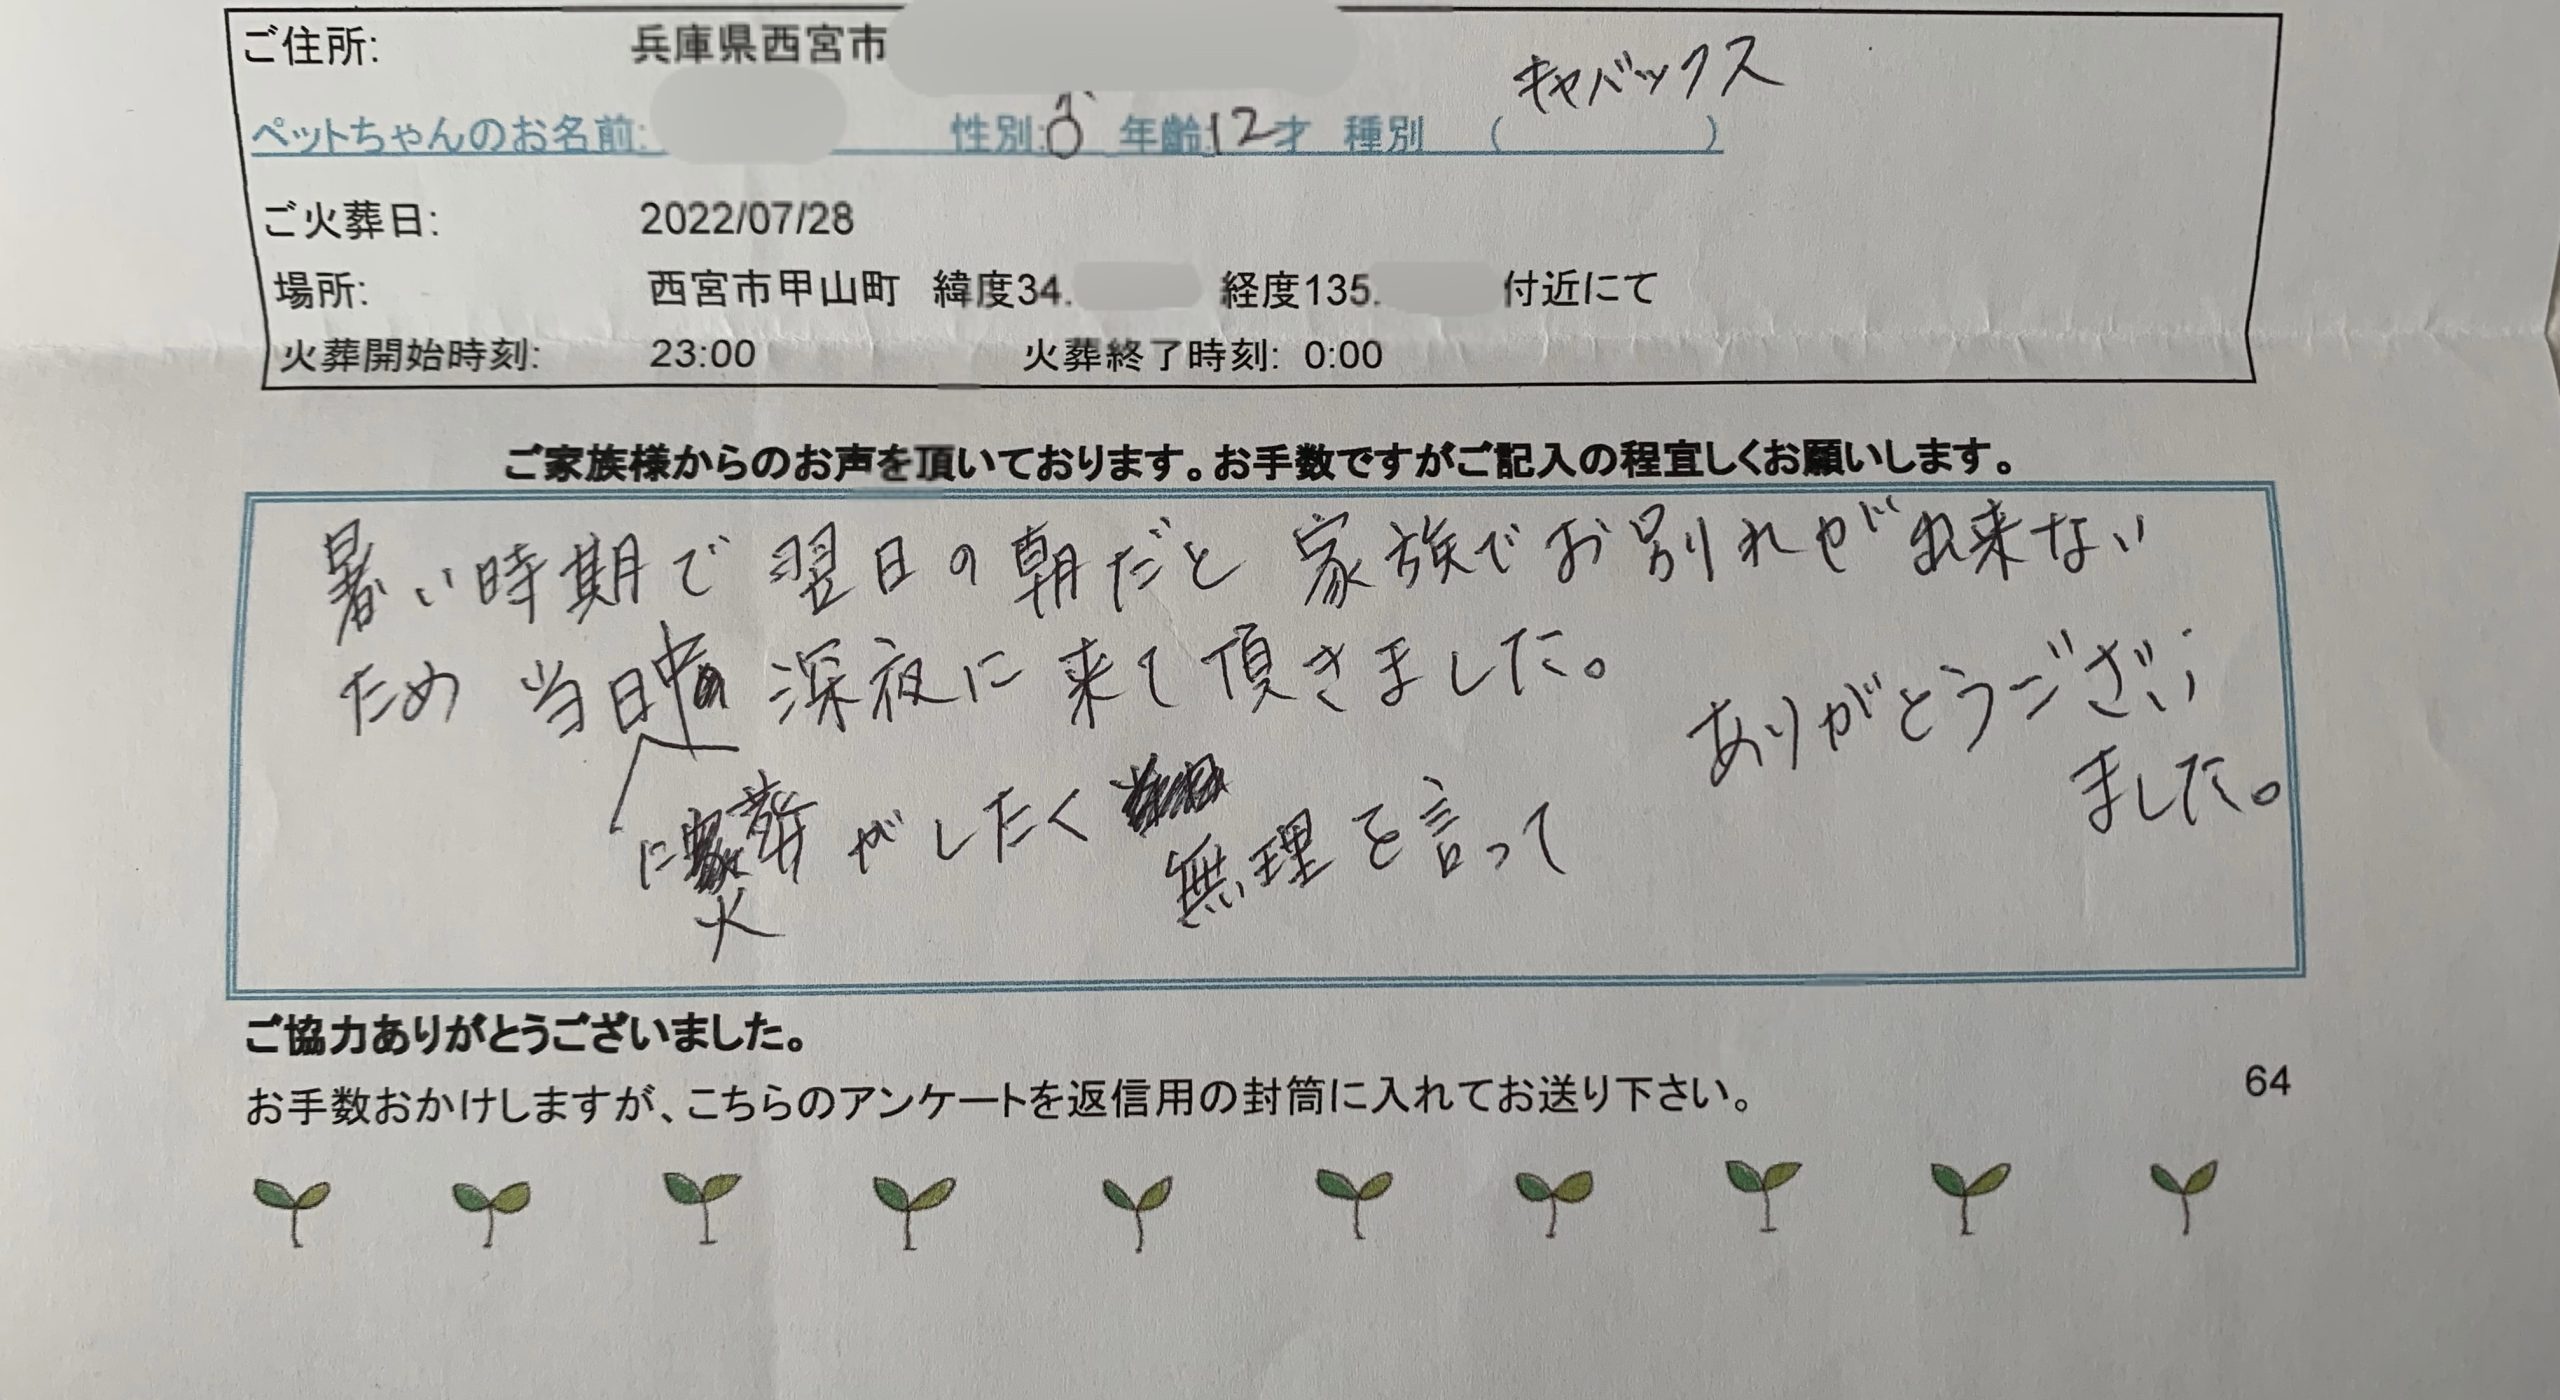 ご住所: 兵庫県西宮市
ペットちゃんのお名前: 性別:♂ 年齢:12才 種別 (キャバックス)
ご火葬日: 2022/07/28
場所: 西宮市甲山町 緯度34. 経度135. 付近にて
火葬開始時刻: 23:00 火葬終了時刻: 0:00
ご家族様からのお声を頂いております。お手数ですがご記入の程宜しくお願いします。
暑い時期で翌日の朝だと家族でお別れが出来ない
ため当日中に火葬がしたく無理を言って
深夜に来て頂きました。
ありがとうござい
ました。
ご協力ありがとうございました。
お手数おかけしますが、こちらのアンケートを返信用の封筒に入れてお送り下さい。
64